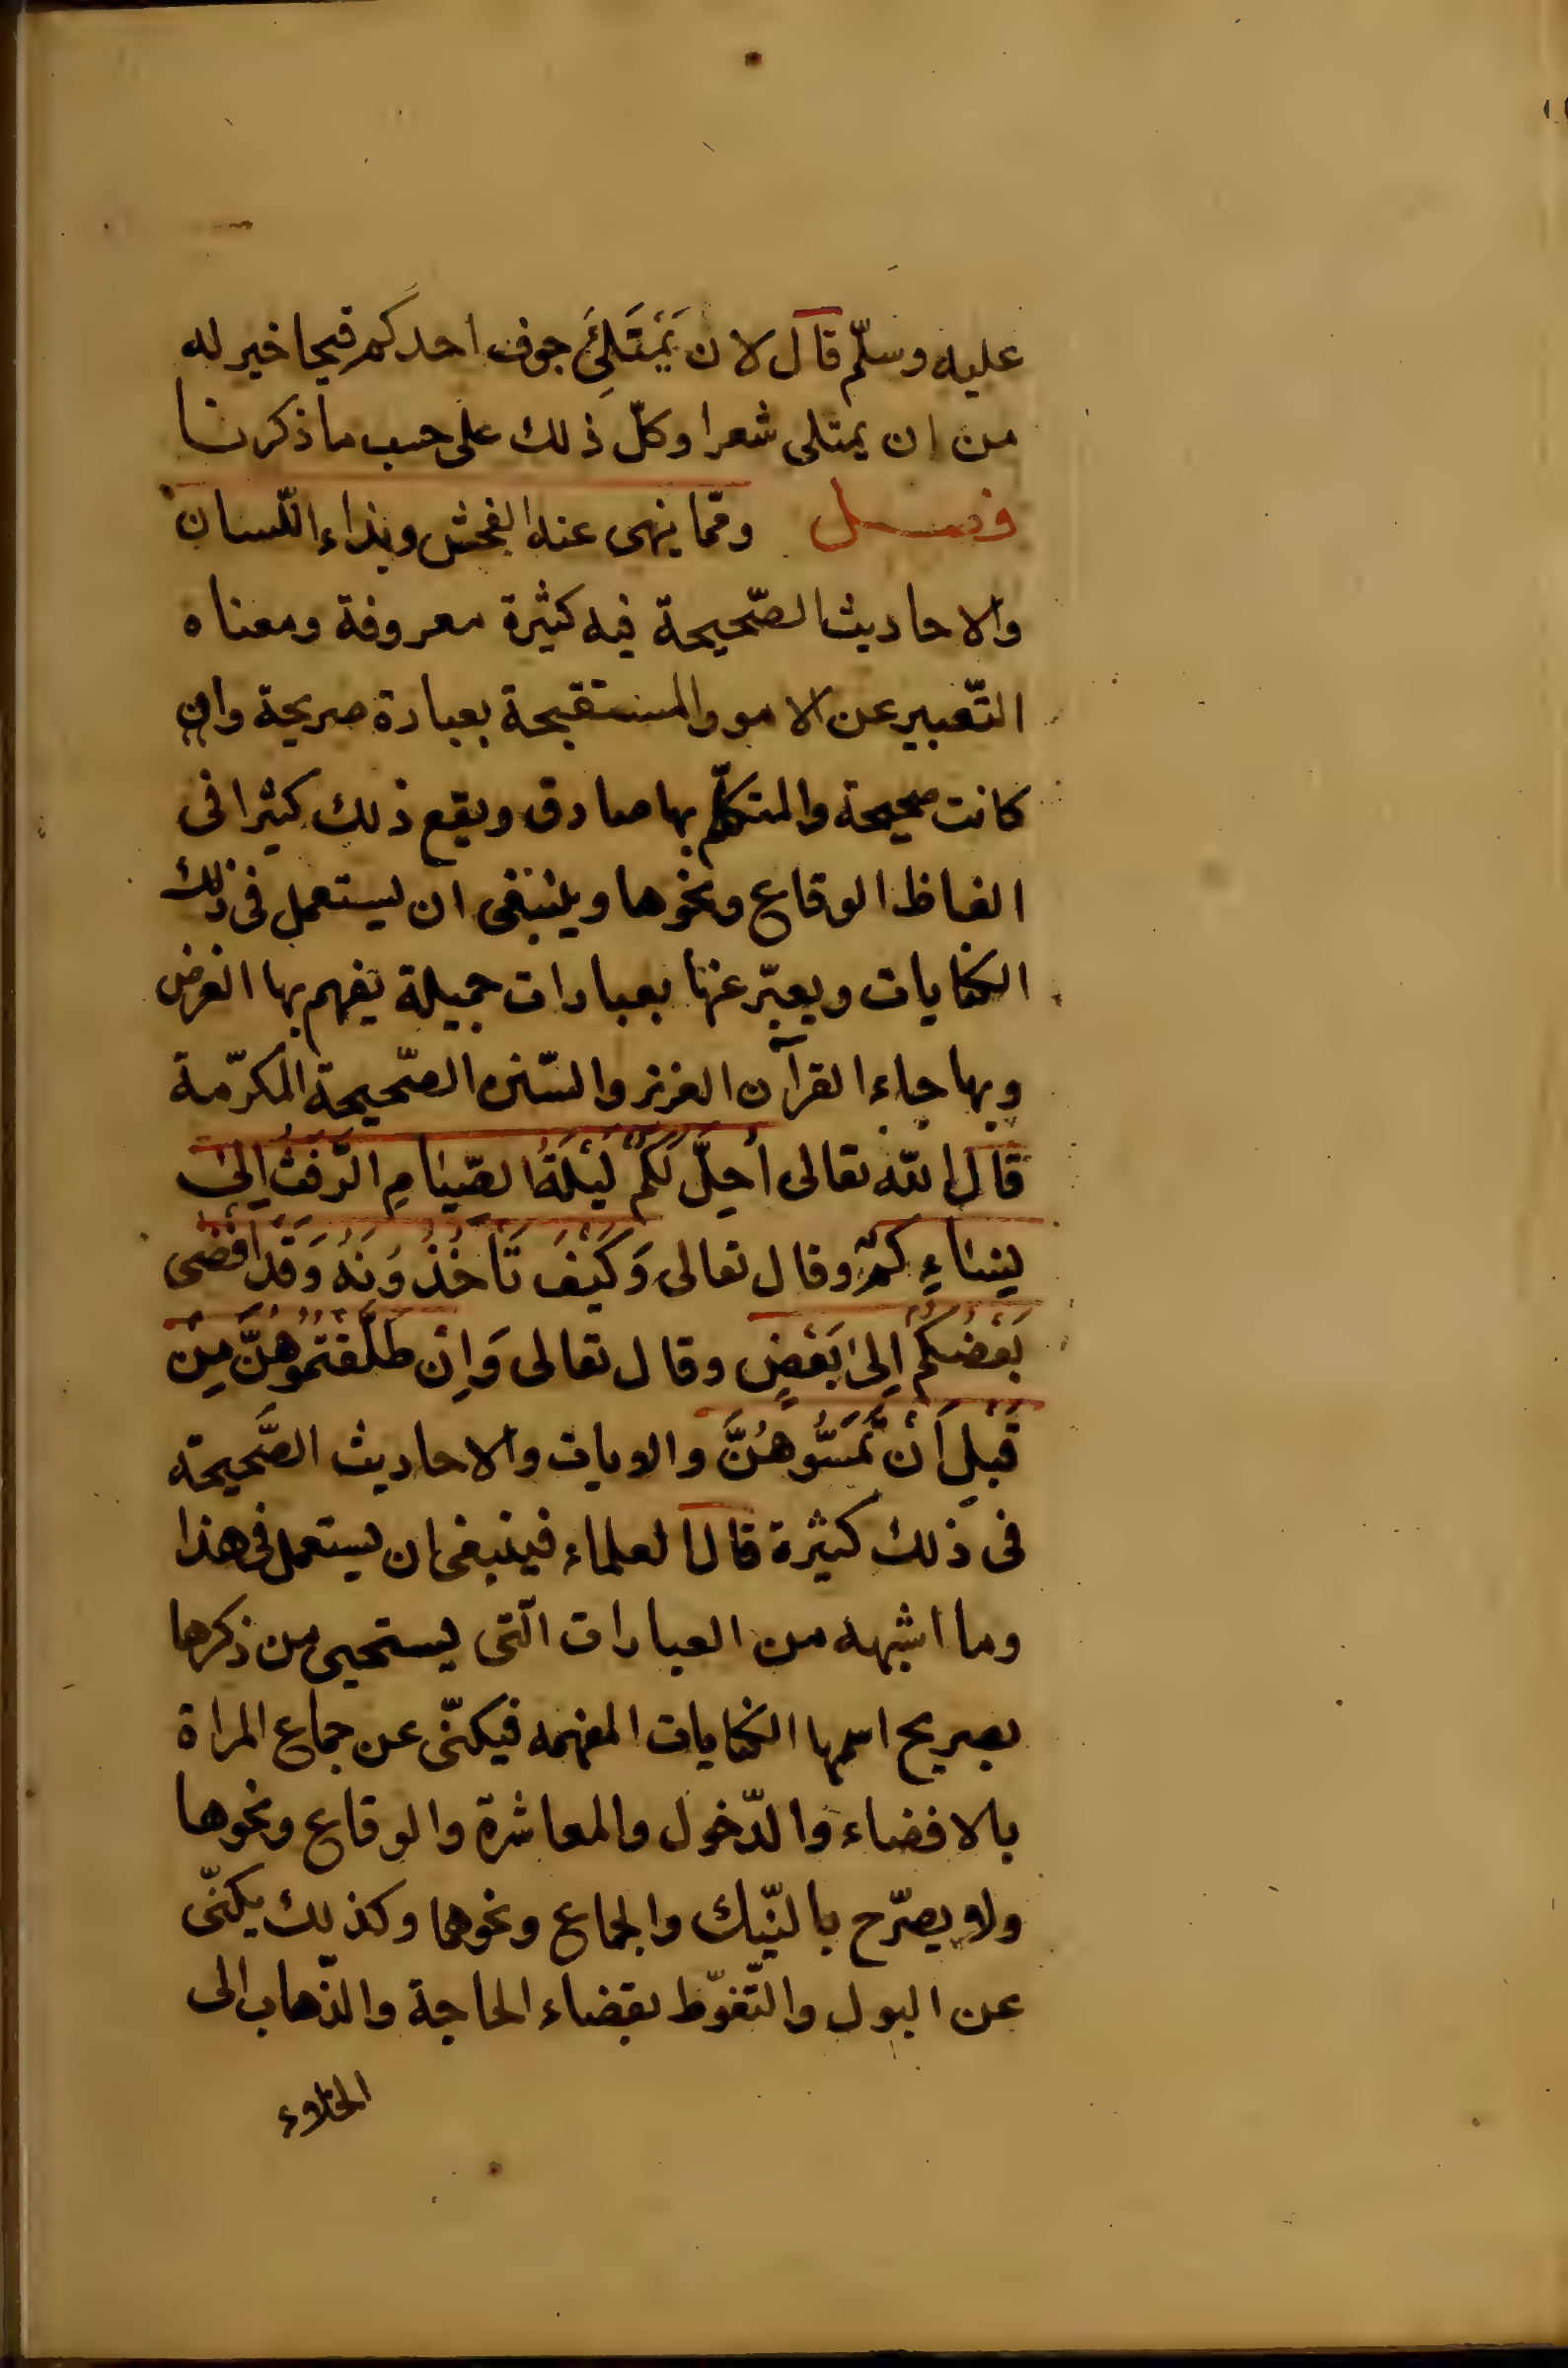 عليه وسلّم قال لان يَمْتَلِئَ جوف احدكم قيحا خير له
من ان يمتلى شعرا وكلّ ذلك على حسب ما ذكرنا
فصل وممّا ينهى عنه الفحش وبذاء اللّسان
والاحاديث الصّحيحة فيه كثيرة معروفة ومعناه
التّعبير عن الامور المستقبحة بعبارة صريحة وان
كانت صحيحة والمتكلّم بها صادق ويقع ذلك كثيرا فى
الفاظ الوقاع ونحوها وينبغى ان يستعمل فى ذلك
الكنايات ويعبّر عنها بعبارات جميلة يفهم بها الغرض
وبها جاء القرآن العزيز والسّنن الصّحيحة المكرّمة
قال الله تعالى اُحِلَّ لَكُمْ لَيْلَةَ الصِّيَامِ الرَّفَثُ اِلىٰ
نِسَاءِكُمْ وقال تعالى وَكَيْفَ تَاْخُذُوْنَهُ وَقَدْ اَفْضٰى
بَعْضُكُمْ اِلىٰ بَعْضٍ وقال تعالى وَاِنْ طَلَّقْتُمُوْهُنَّ مِنْ
قَبْلِ اَنْ تَمَسُّوْهُنَّ والايات والاحاديث الصَّحيحة
فى ذلك كثيرة قال العلماء فينبغى ان يستعمل فى هذا
وما اشبهه من العبارات الّتى يستحيى من ذكرها
بصريح اسمها الكنايات المفهمه فيكنّى عن جماع المراة
بالافضاء والدّخول والمعاشرة والوقاع ونحوها
ولا يصرّح بالنّيك والجماع ونحوهما وكذلك يكنّى
عن البول والتّغوّط بقضاء الحاجة والذّهاب الى
الخلاء